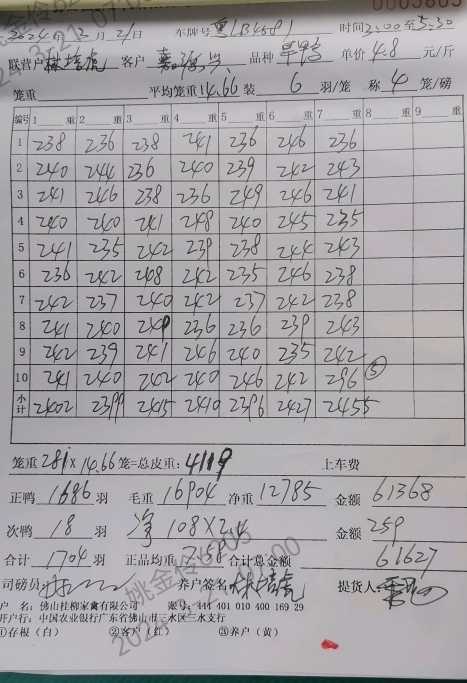 0005805
2024年12月21日 车牌号 时间2:00至5:30
联营户 客户 品种 旱鸭 单价4.8元/斤
笼重 平均笼重14.66装 6 羽/笼 称 4 笼/磅
编号 1 重 2 重 3 重 4 重 5 重 6 重 7 重 8 重 9 重
1 238 236 238 241 236 246 236
2 240 244 236 240 239 242 243
3 241 246 238 236 249 246 241
4 240 240 241 248 240 245 235
5 241 235 242 239 238 244 243
6 236 242 248 242 235 246 238
7 242 237 240 242 237 242 238
8 241 240 240 236 236 239 243
9 242 239 241 246 240 235 242
10 241 240 242 240 246 242 296 ⑤
小计 2402 2399 2415 2410 2396 2427 2455
笼重 281×14.66笼=总皮重:4119 上车费
正鸭 1686 羽 毛重 16904 净重 12785 金额 61368
次鸭 18 羽 净 108×2.4 金额 259
合计 1704 羽 正品均重 7.58 合计总金额 61627
司磅员 养户签名 提货人
户 名:佛山桂柳家禽有限公司 账号:444 401 010 400 169 29
开户行:中国农业银行广东省佛山市三水区三水支行
①存根(白) ②客户(红) ③养户(黄)